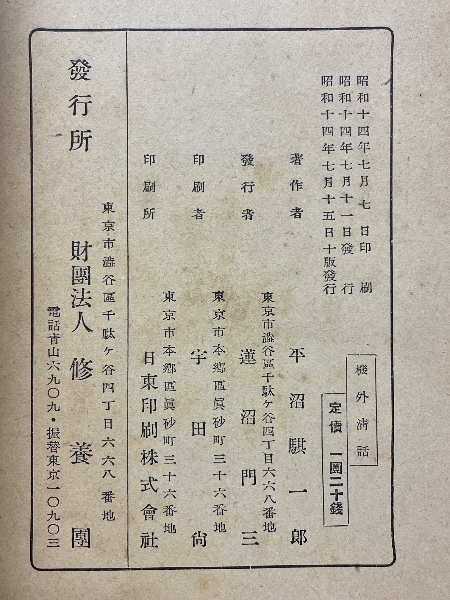 昭和十四年七月七日印刷
昭和十四年七月十一日發行
昭和十四年七月十五日十版發行
機外清話
定價 一圓二十錢
著作者 平沼騏一郎
東京市澁谷區千駄ケ谷四丁目六六八番地
發行者 蓮沼門三
東京市本鄉區眞砂町三十六番地
印刷者 宇田尙
東京市本鄉區眞砂町三十六番地
印刷所 日東印刷株式會社
東京市澁谷區千駄ケ谷四丁目六六八番地
發行所 財團法人 修養團
電話靑山六九〇九・振替東京一〇九〇三